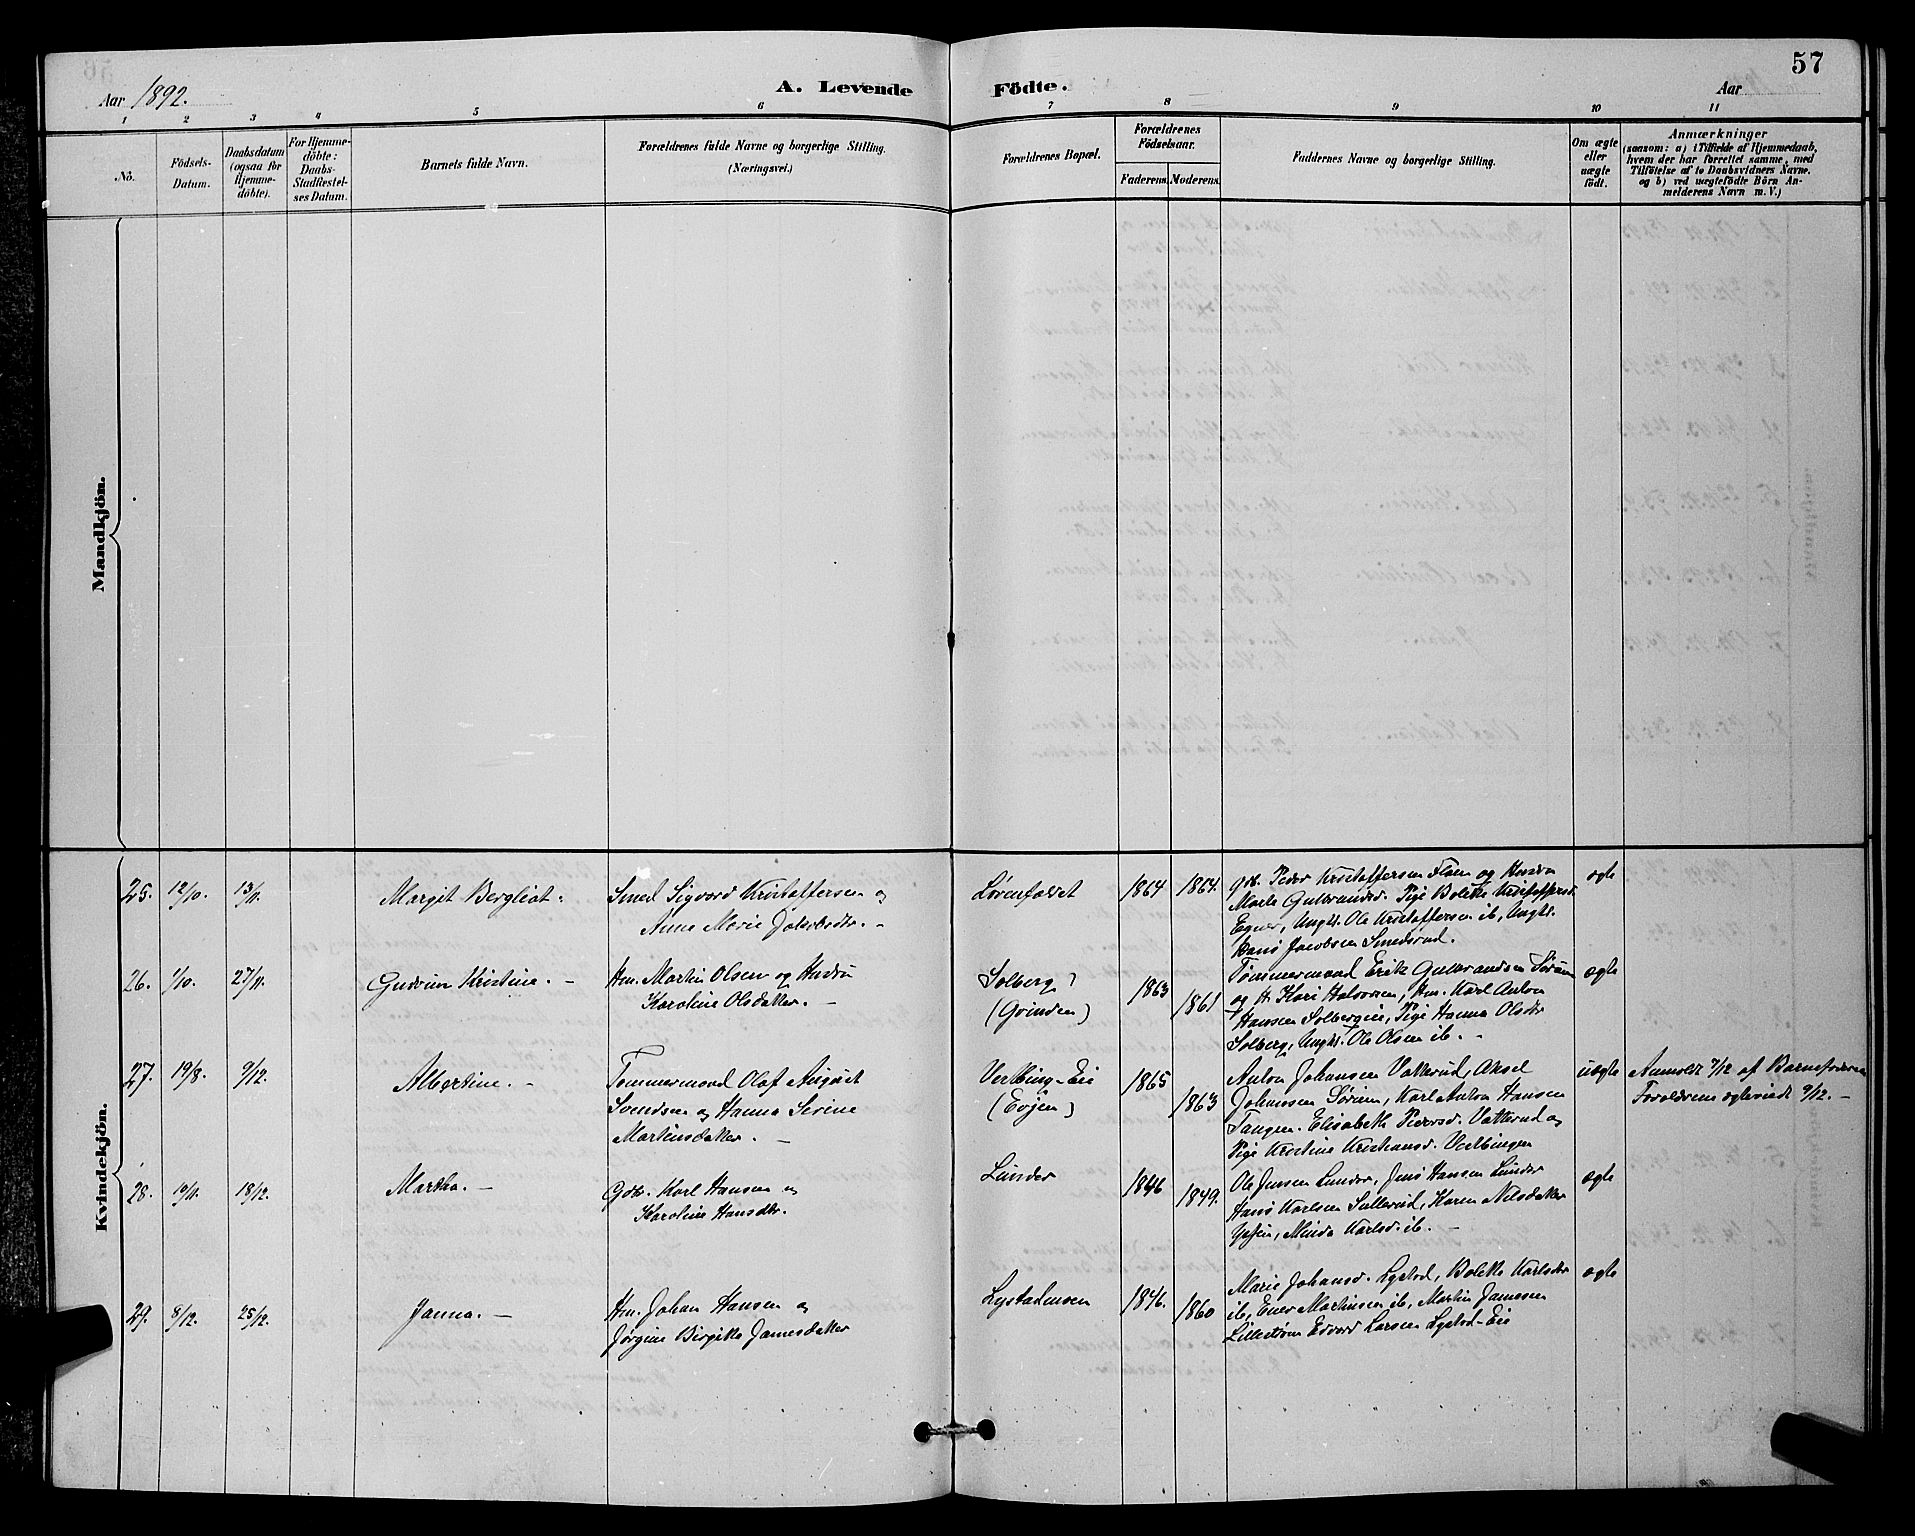 57
Aar 1892.
A. Levende Födte.
Aar
1 2 3 4 5 6 7 8 9 10 11
No.
Födsels-
Datum.
Daabsdatum
(ogsaa for
Hjemme-
döbte).
For Hjemme-
döbte:
Daabs-
Stadfæstel-
ses Datum.
Barnets fulde Navn.
Forældrenes fulde Navne og borgerlige Stilling.
(Næringsvei.)
Forældrenes Bopæl.
Forældrenes
Födselsaar.
Faderens.
Moderens.
Faddernes Navne og borgerlige Stilling.
Om ægte
eller
uægte
født.
Anmærkninger
(saasom: a) i Tilfælde af Hjemmedaab,
hvem der har forrettet samme, med
Tilføielse af to Daabsvidners Navne,
og b) ved uægtefødte Börn An-
melderens Navn m. V.)
Mandkjön.
Kvindekjön.
25. 12/10. 13/11.
Margit Bergliot.
Smed Sigvard Kristoffersen og
Anne Marie Jakobsdtr. -
Lörenfaldet
1864 1864.
Gbr. Peder Kristoffersen Floen og Hustru
Marte Gulbrandsd. Pige Bolette Kristoffersd.
Egner, Ungk. Ole Kristoffersen ib, Ungk.
Hans Jacobsen Smedsrud.
ægte
26. 1/10. 27/11.
Gudrun Kristine. -
Hm. Martin Olsen og Hustru
Karoline Olsdatter. -
Solberg
(Grinden)
1863 1861
Tømmermand Erik Gulbrandsen Sørum
og H. Kari Halvorsen, Hm. Karl Anton
Hansen Solbergeie, Pige Hanna Olsdtr
Solberg, Ungk. Ole Olsen ib. -
ægte
27. 19/8. 9/12.
Albertine. -
Tømmermand Olaf August
Svendsen og Hanna Serine
Martinsdatter. -
Vestbing-Eie
(Evjen)
1865 1863
Anton Johansen Vatterud, Aksel
Johansen Sörum, Karl Anton Hansen
Tangen. Elisabeth Pedersd. Vatterud og
Pige Kristine Kristiansd.
uægte
Anmeldt 7/12 af Barnefaderen
Forældrene ægteviede 9/12. -
28. 19/11. 18/12.
Martha. -
Gbr. Karl Hansen og
Karoline Hansdtr.
Lunder
1846 1849.
Ole Jensen Lunder, Jens Hansen Lunder
Hans Karlsen Sullerud, Karen Nilsdatter
Minda Karlsd. ib. -
ægte
29. 8/12. 25/12.
Janna. -
Hm. Johan Hansen og
Jørgine Birgitte Jamesdatter
Lystadmoen
1846. 1860
Marie Johansd. Lystad, Bolette Karlsdtr
ib, Ener Martinsen ib, Martin Jamesen
Lillestrøm Edvard Larsen Lystad-Eie
ægte